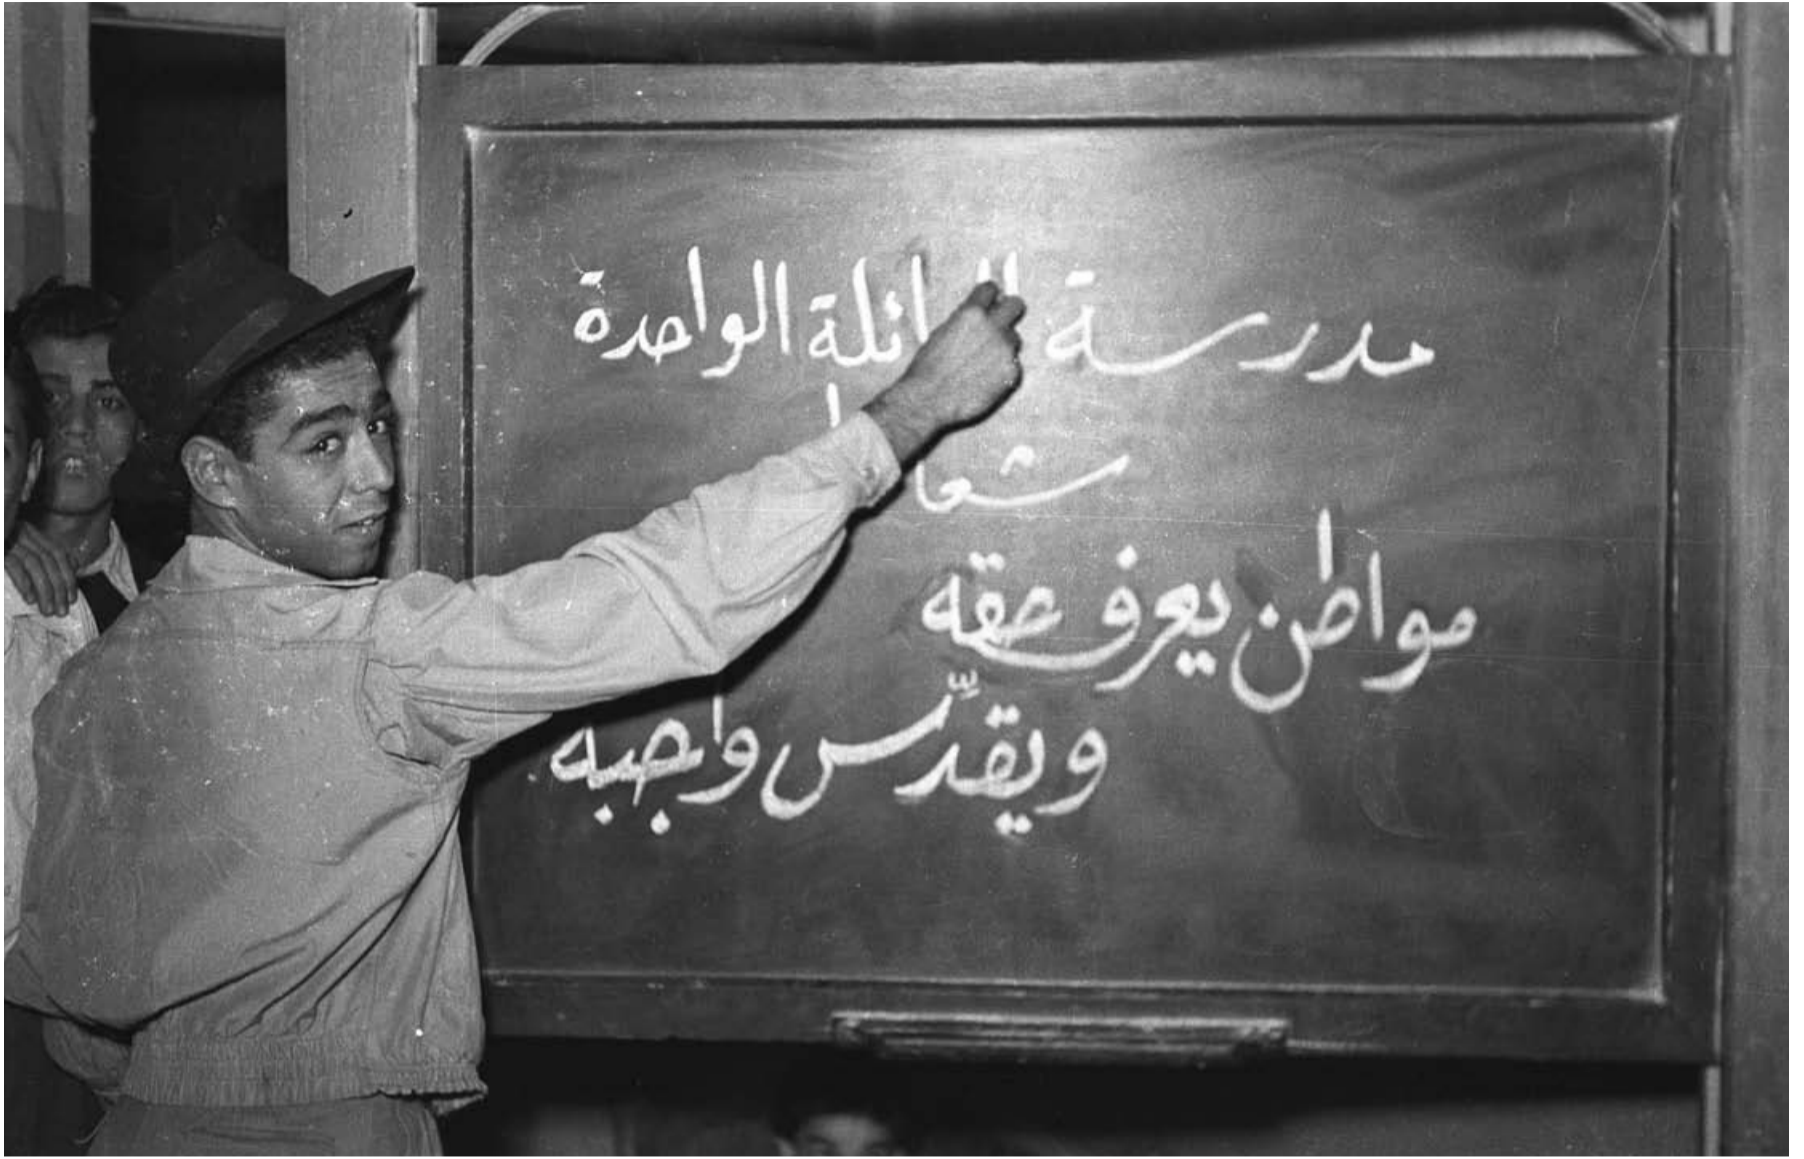 مدرسة العائلة الواحدة
مواطن يعرف حقه
ويقدّس واجبه